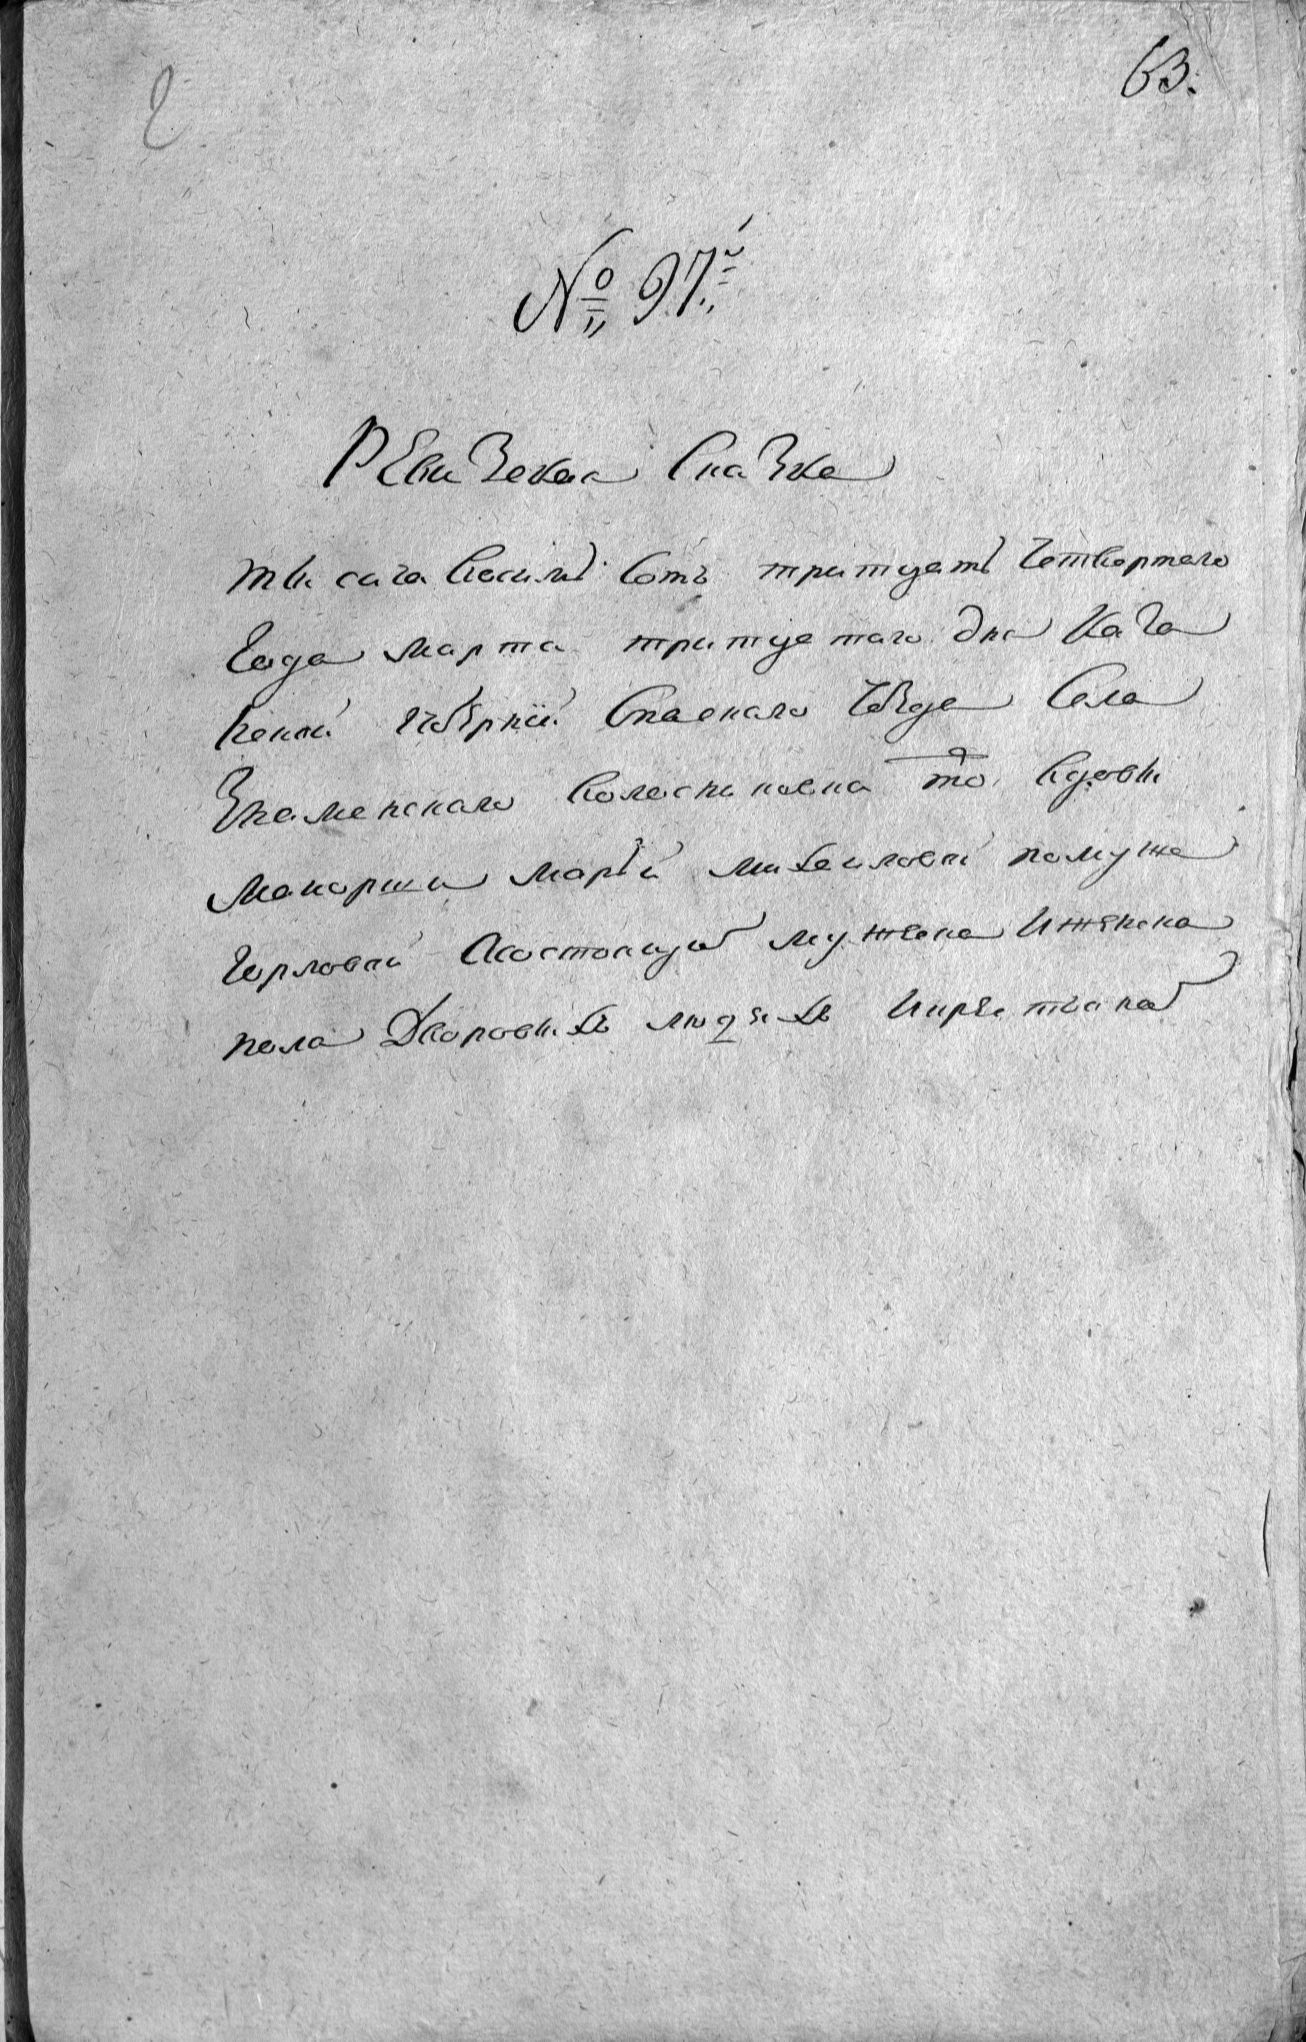 63.
№ 97.й
Ревизская Сказка
тысяча восемь сотъ тритцать четвертого
года марта тритцетаго дня Каза
нской губернии Спаскаго уезда села
Знаменскаго то вдовы
маиорши марьи михаиловой помужа
Горловой Асостоящихъ мужска Иженска
пола Дворовыхъ людяхъ Икрестьянахъ